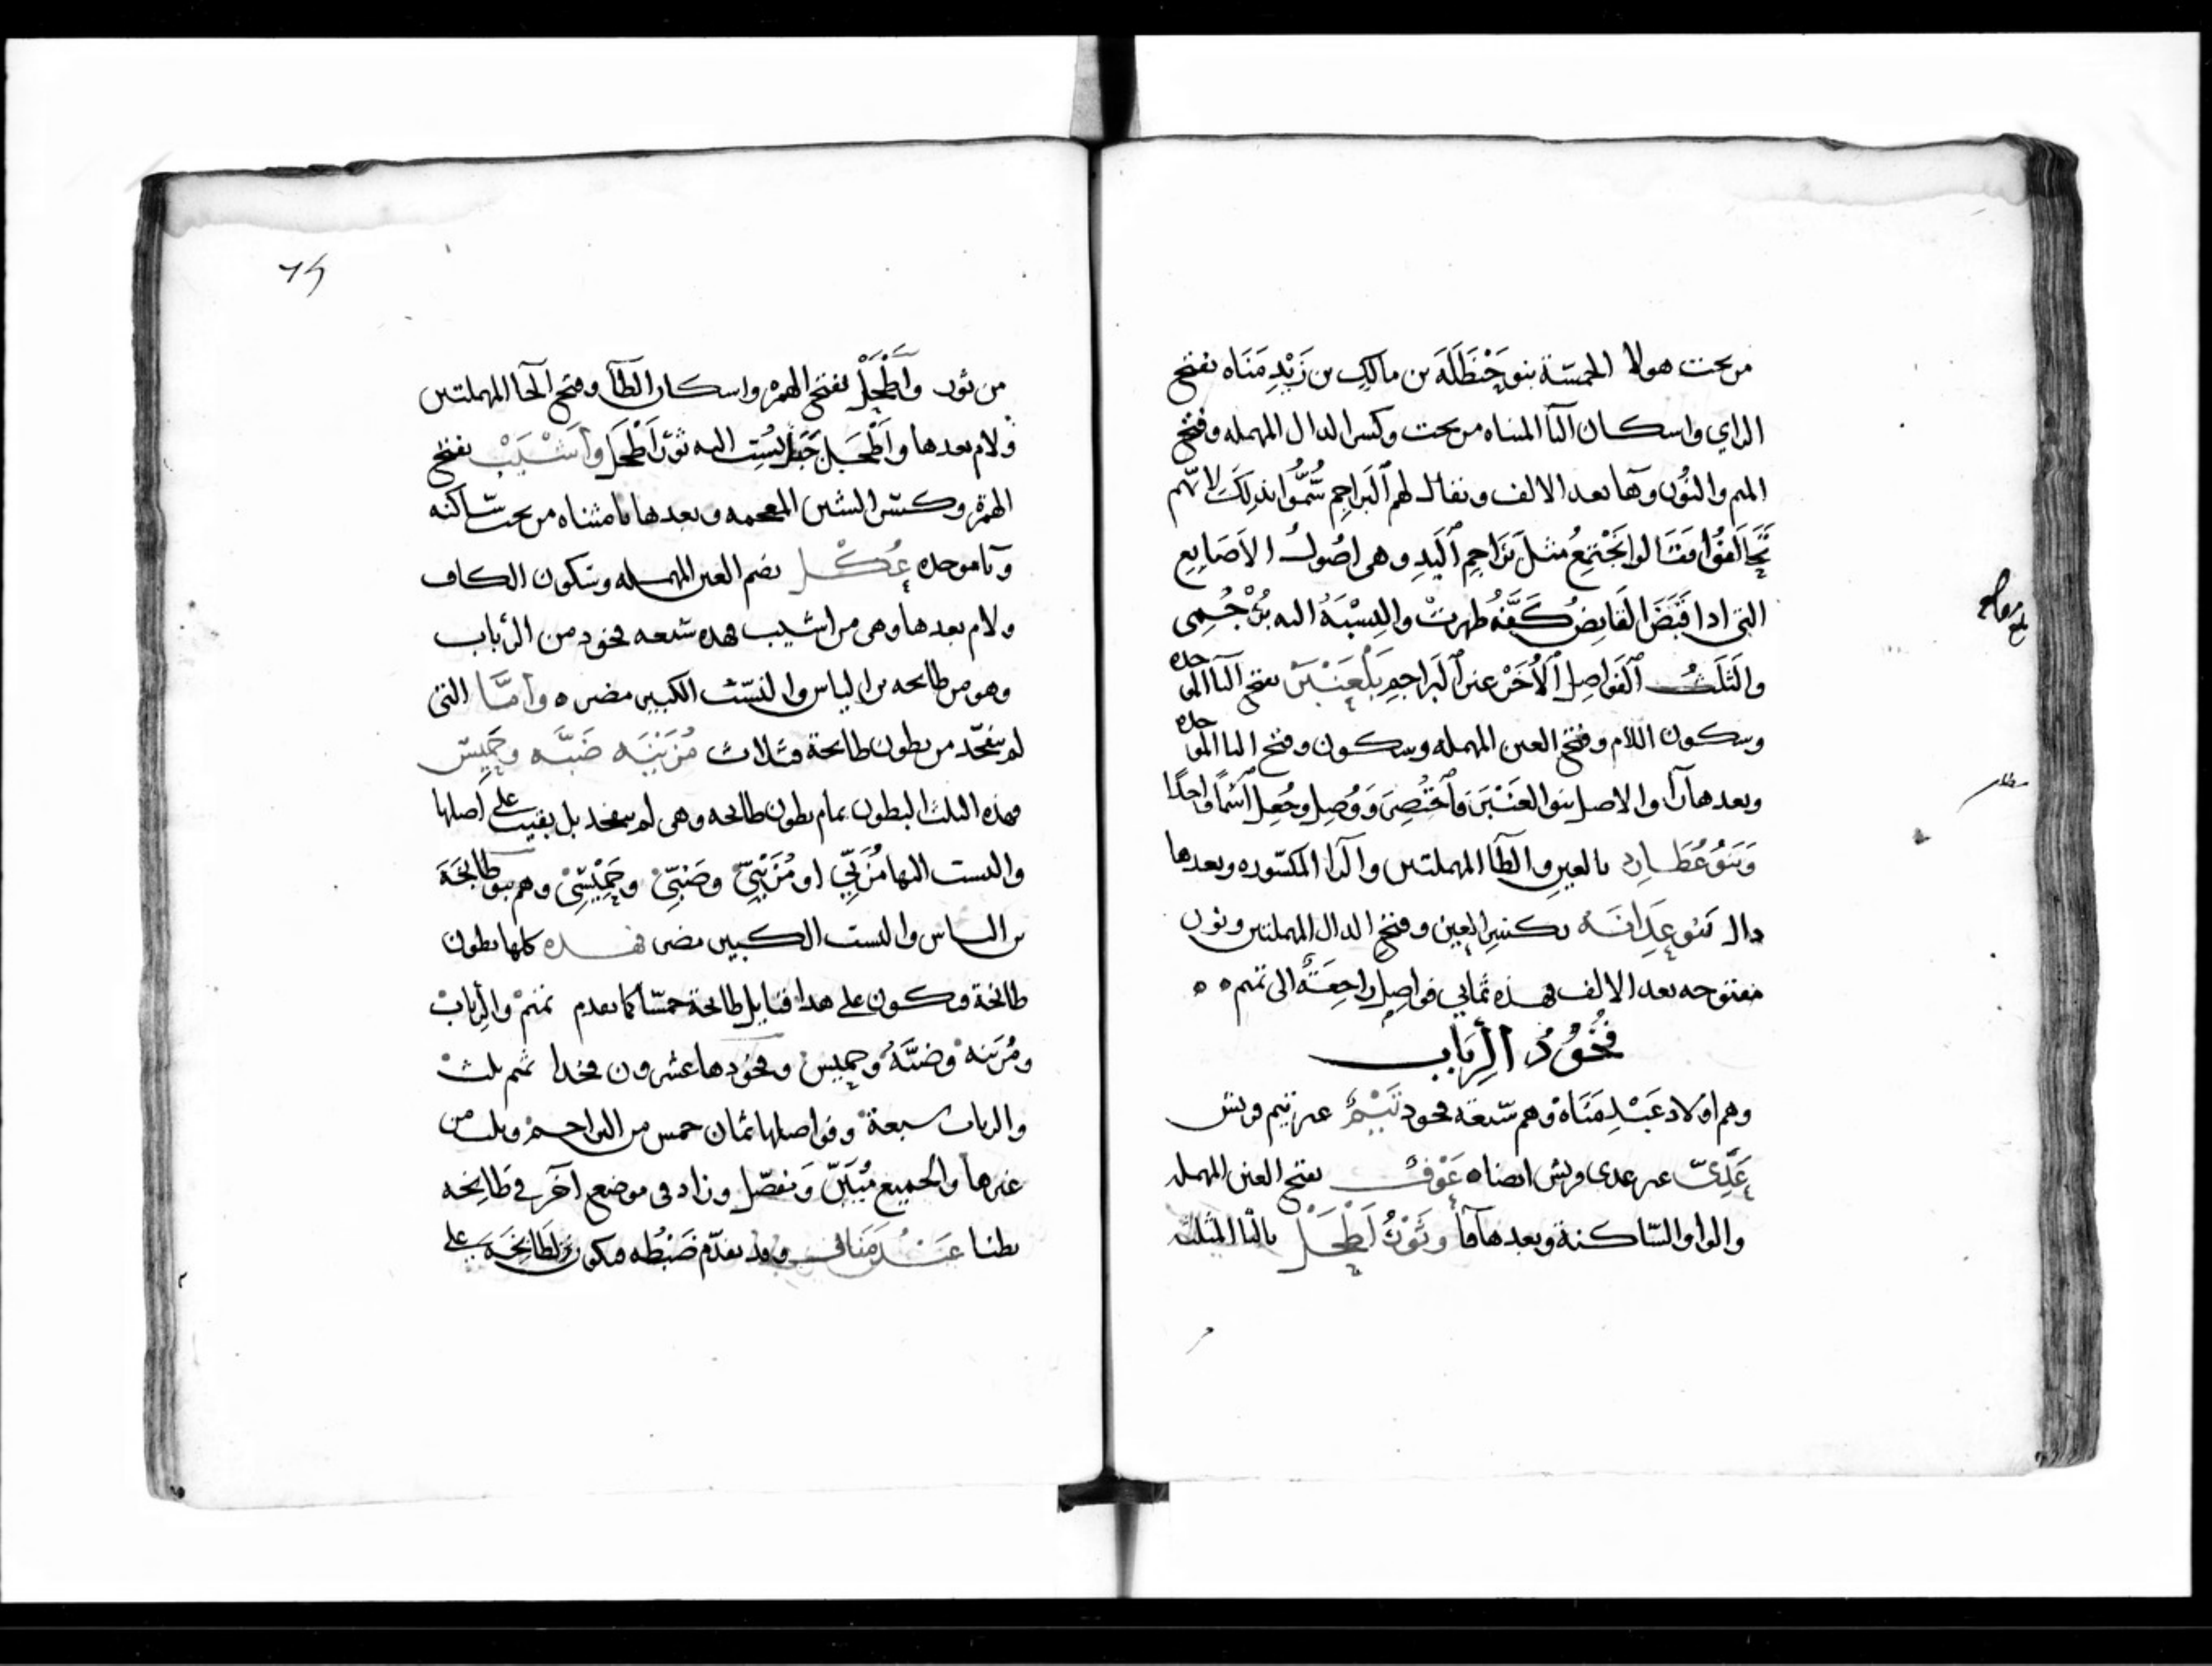 من تحت هولا الخمسة بنو حَنْظَلَةَ بن مالك بن زَيْدِ مَنَاه بفتح
الزاي واسكان اليا المثناه من تحت وكسر الدال المهمله وفتح
الميم والنون وها بعد الالف ويقال لهم البَراجِم سُمُّوا بذلك لانهم
تَحَالَفُوا فقالوا نَجْتمِعُ مثلَ بَرَاجِمِ اليَدِ وهى اصُولُ الاَصَابِع
التى ادا قَبَضَ القابِضُ كَفَّهُ ظهرتْ والنِسْبَةُ اليه بُرْجُمِى
والثلث الفَواصِل الأُخَرْ عن البَراجِمِ بَلْعَنْبَرْ بفتح البا الموحده
وسكون اللام وفتح العين المهمله وسكون وفتح البا الموحده
وبعدها را والاصل بنو العَنْبَرَ فاخْتُصِرَ وَوُصِلَ وجُعِلَ اسْمًا واحِدًا
وَبَنُو عُطَارِد بالعين والطا المهملتين والرا المكسوره وبعدها
دال بَنُو عِدَانَه بكسر العين وفتح الدال المهملتين ونون
مفتوحه بعد الالف فهذه ثمانى فواصِل راجِعَةٌ الى تميم ه ه
فُخُوذُ الرِبَاب
وهم اولاد عَبْدِ مَنَاة وهم سبعه فخود تَيْمٌ غير تيم قريش
عَدِىّ غير عدى قريش ايضا ه عَوْفٌ بفتح العين المهمله
والواو السّاكنة وبعدها فا وثَوْرُ اَطْحَلْ بالثا المثلثه
من ثور واَطْحَلْ بفتح الهمزه واسكان الطا وفتح الحا المهملتين
ولام بعدها واَطْحَل جَبَلٌ نُسِبَ اليه ثورُ اَطْحَل وأَشْيَبْ بفتح
الهمزة وكسر الشين المعجمه وبعدها يا مثناه من تحت ساكنه
وبا موحده عُكْل بضم العين المهمله وسكون الكاف
ولام بعدها وهى من اشيب فهذه سبعه فخود من الرباب
وهو من طابخه بن الياس والنسب الكبير مضر ه وأمَّا التى
لم تتفخّد من بطون طابخة فثلاث مُزَيْنَه ضَبَّه وحَمِيس
فهذه الثلث البطون تمام بطون طابخه وهى لم تتفخد بل بقيت على اصلها
والنسب اليها مُزَنِّى او مُزَيْنِىّ وضَبِّىّ وحَمِيْسِّىْ وهم بنو طابِخَةَ
بن الياس والنسب الكبير مضر فهذه كلها بطون
طابخة فيكون على هدا قبايل طابخة خمسًا كما تقدم تميم والرباب
ومُزَينه وضبَّة وحميس وفخودها عشرون فخدا تميم ثلث
والرباب سبعة وفواصلها ثمان خمس من البراجم وثلث من
غيرها والجميع مُبَيّن وَمفصّل وزاد فى موضع اخر فى طابِخه
بطنا عَبْدُ مَنَاف وقد تقدّم ضَبْطُه فيكون لطَابِخَة على